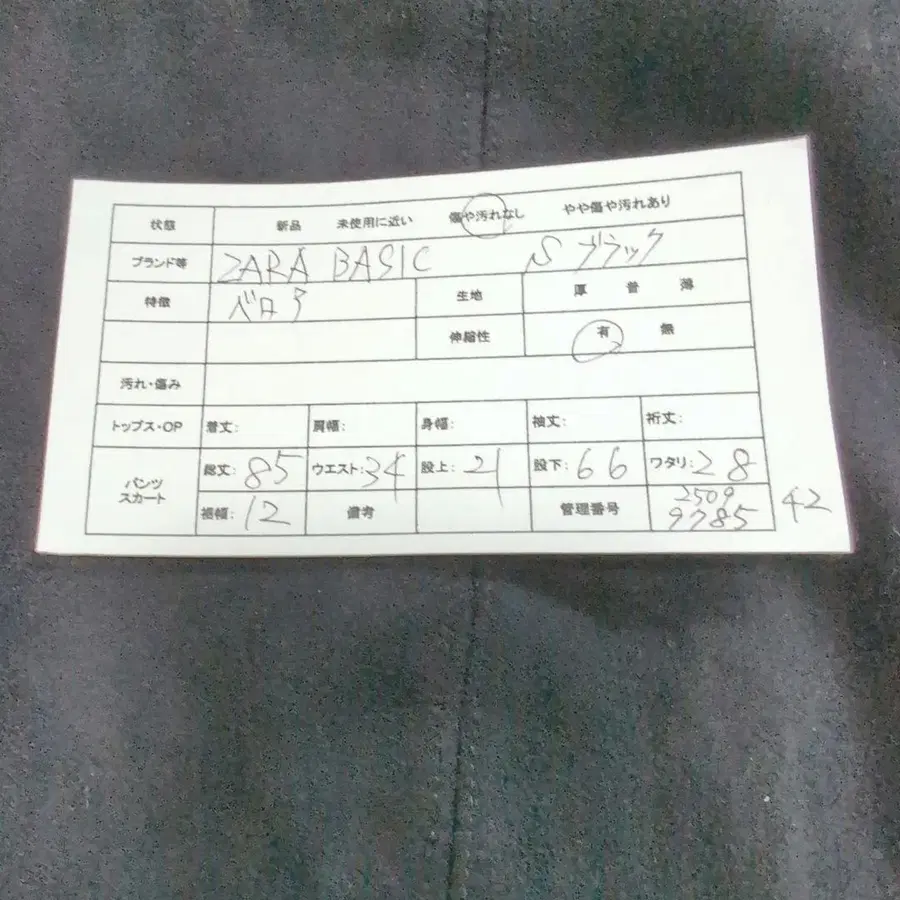 状態 新品 未使用に近い 傷や汚れなし やや傷や汚れあり
ブランド等 ZARA BASIC S ブラック
特徴 ベロア 生地 厚 普 薄
伸縮性 有 無
汚れ・傷み
トップス・OP 着丈: 肩幅: 身幅: 袖丈: 裄丈:
パンツ スカート 総丈: 85 ウエスト: 34 股上: 21 股下: 66 ワタリ: 28
裾幅: 12 備考 管理番号 2509 9785 42